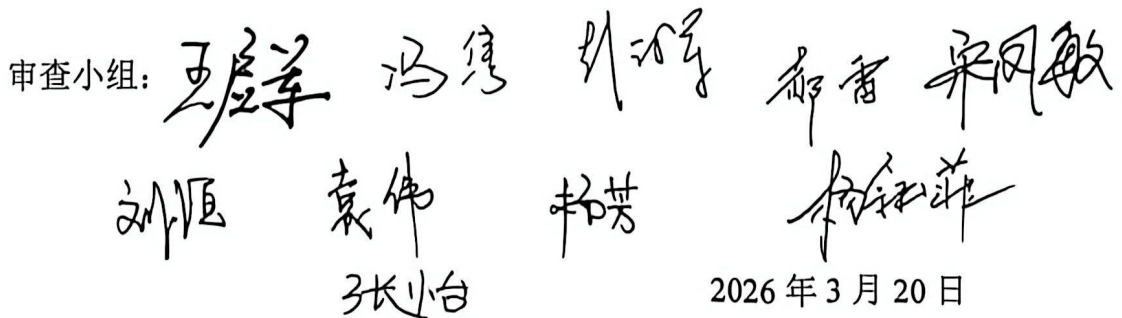 审查小组： 冯隽 郝雷 宋凤敏
刘恒 袁伟 杨芳
张小台 2026 年 3 月 20 日